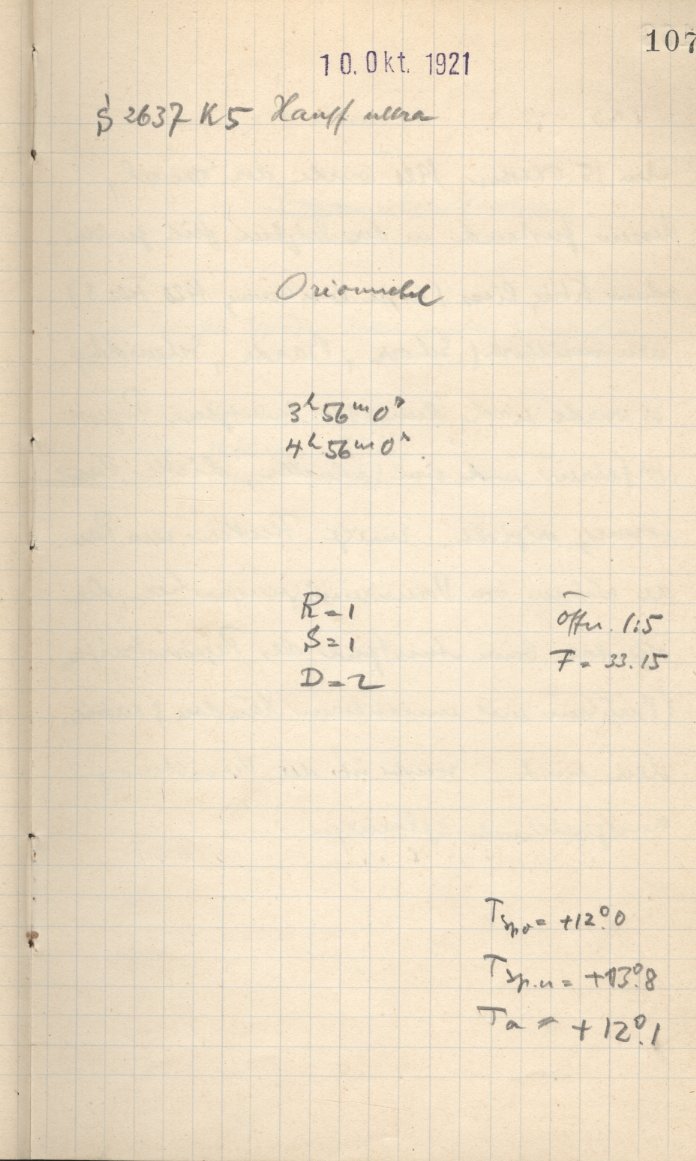 107
10. Okt. 1921
S 2637 K5 Hauff ultra
Orionnebel
3ʰ 56ᵐ 0ˢ
4ʰ 56ᵐ 0ˢ
R = 1
S = 1
D = 2
Öffn. 1:5
F = 33.15
T sp. o = +12°.0
T sp. u = +13°.8
Ta = +12°.1